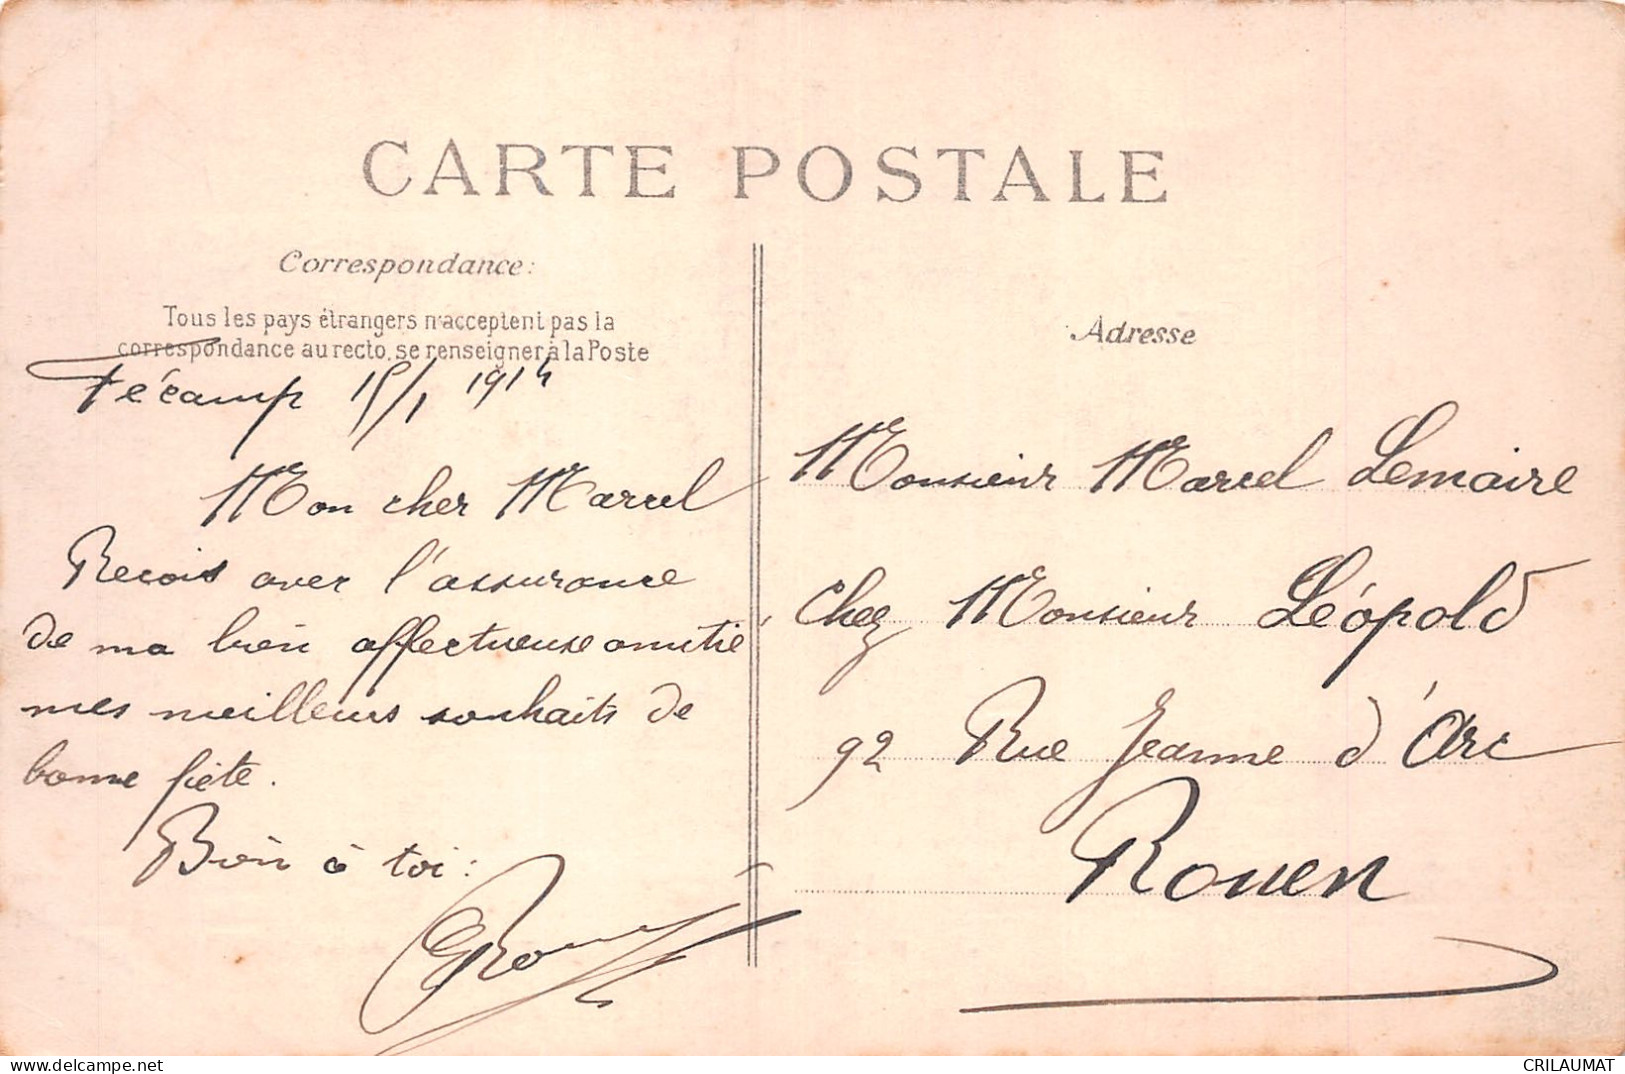 CARTE POSTALE
Correspondance:
Tous les pays étrangers n'acceptent pas la
correspondance au recto, se renseigner à la Poste
Fécamp 15/1 1914
Mon cher Marcel
Reçois avec l'assurance
de ma bien affectueuse amitié
mes meilleurs souhaits de
bonne fête.
Bien à toi:
Adresse
Monsieur Marcel Lemaire
chez Monsieur Léopold
92 Rue Jeanne d'Arc
Rouen
CRILAUMAT